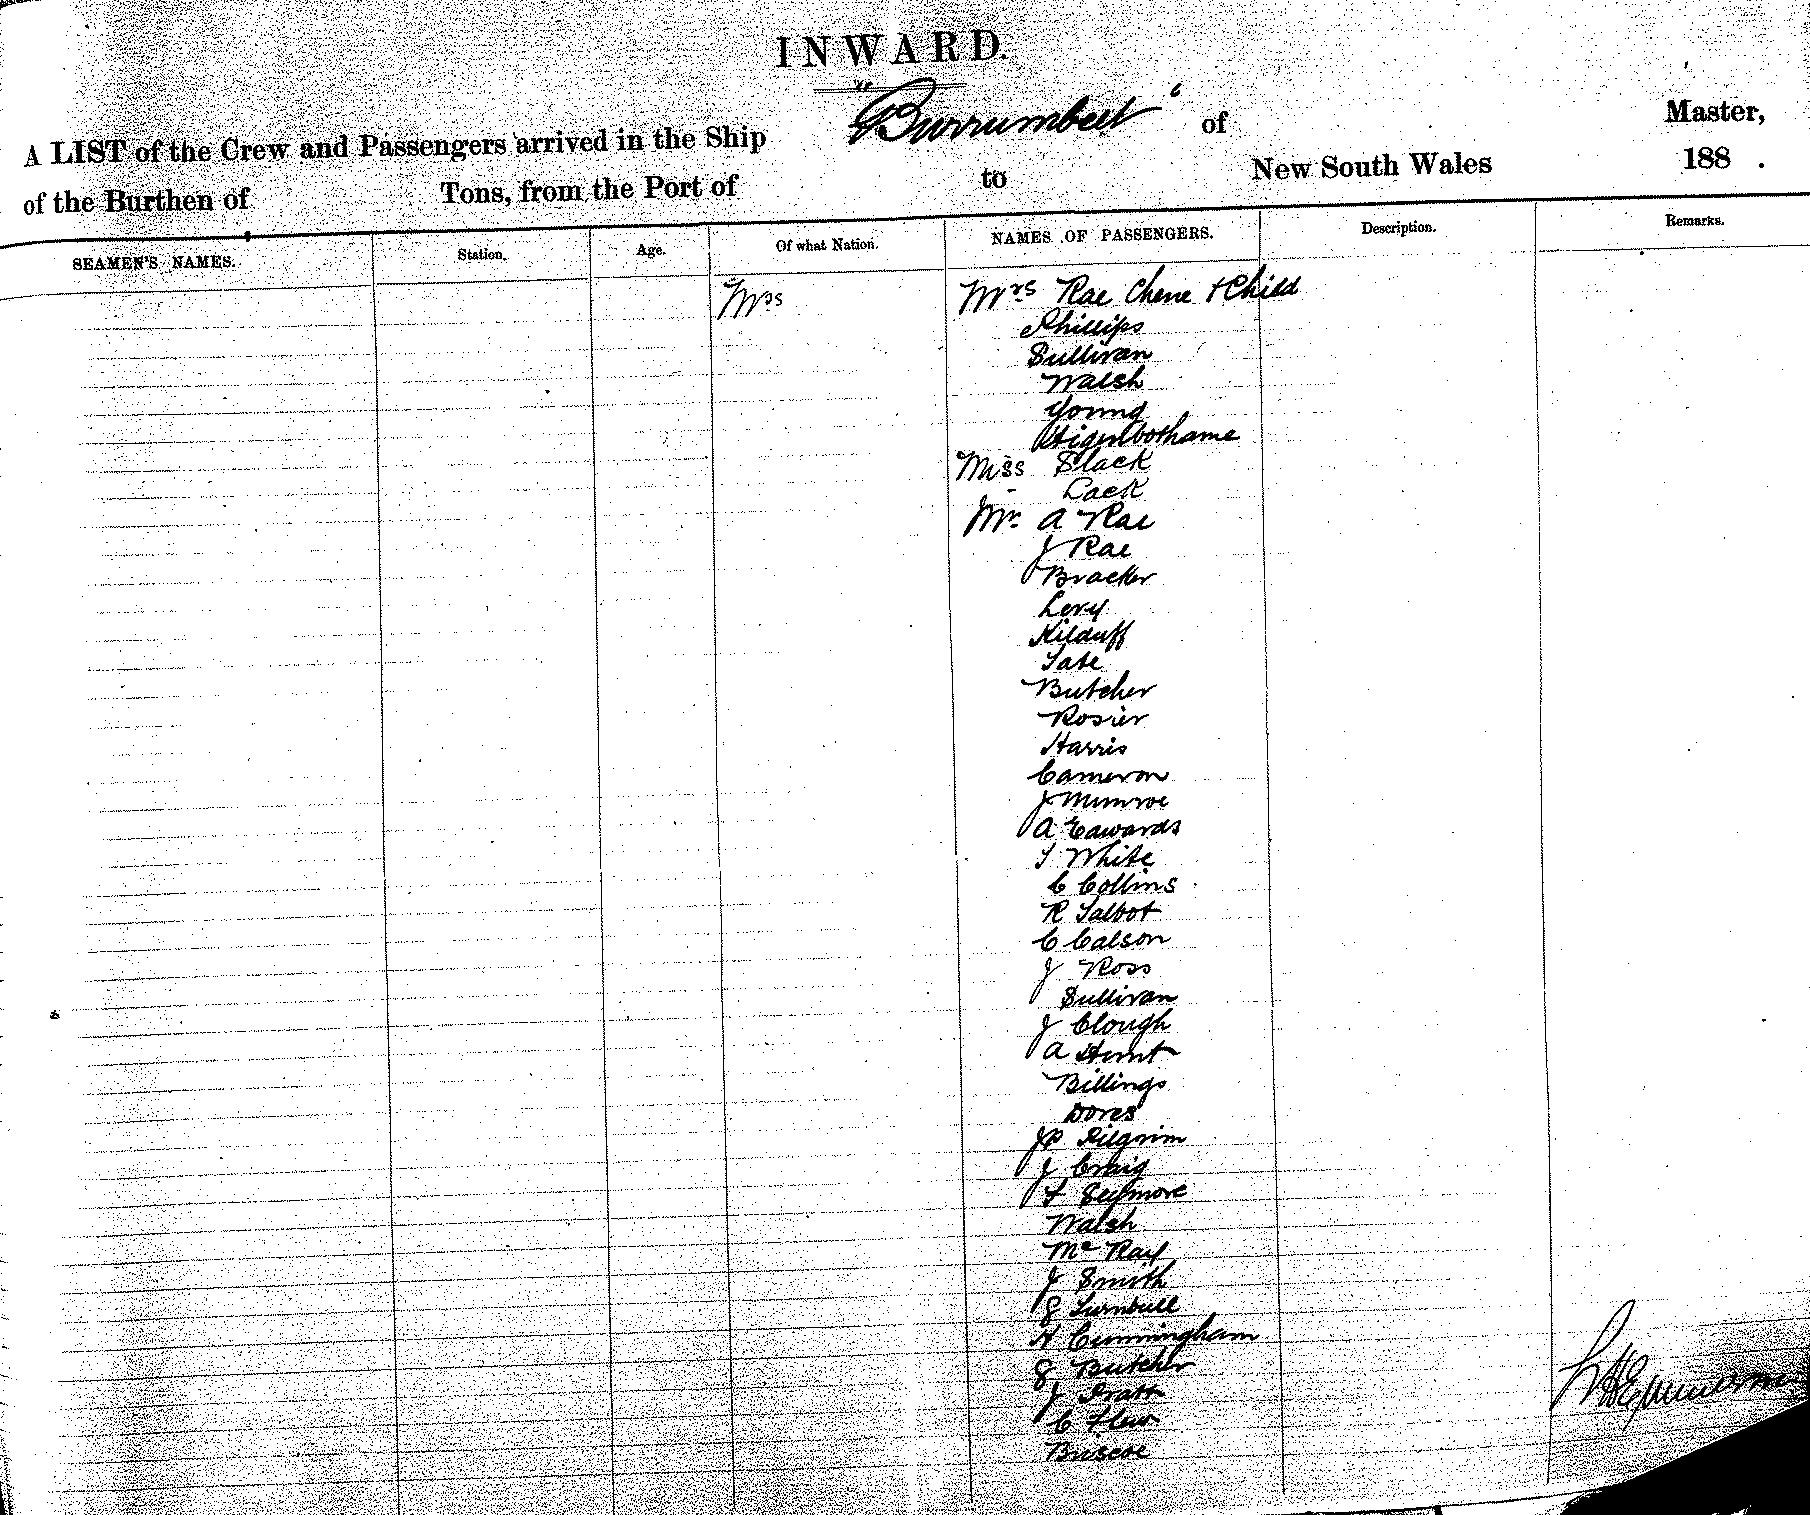 INWARD.
A LIST of the Crew and Passengers arrived in the Ship "Burrumbeet" of Master,
of the Burthen of Tons, from the Port of to New South Wales 188 .
SEAMEN'S NAMES. Station. Age. Of what Nation. NAMES OF PASSENGERS. Description. Remarks.
Mrs Mrs Rae Chene + Child
Phillips
Sullivan
Walsh
Young
Higenbothame
Miss Slack
- Lack
Mr A Rae
J Rae
Bracker
Levy
Kilduff
Tate
Butcher
Rosier
Harris
Cameron
J Munroe
A Edwards
T White
C Collins
R Talbot
C Calson
J Ross
Sullivan
J Clough
A Hunt
Billings
Dores
JP Pilgrim
J Craig
F Seymore
Walsh
Mc Kay
J Smith
G Turnbull
H Cunningham
G Butcher
J Pratt
C Flew
Briscoe